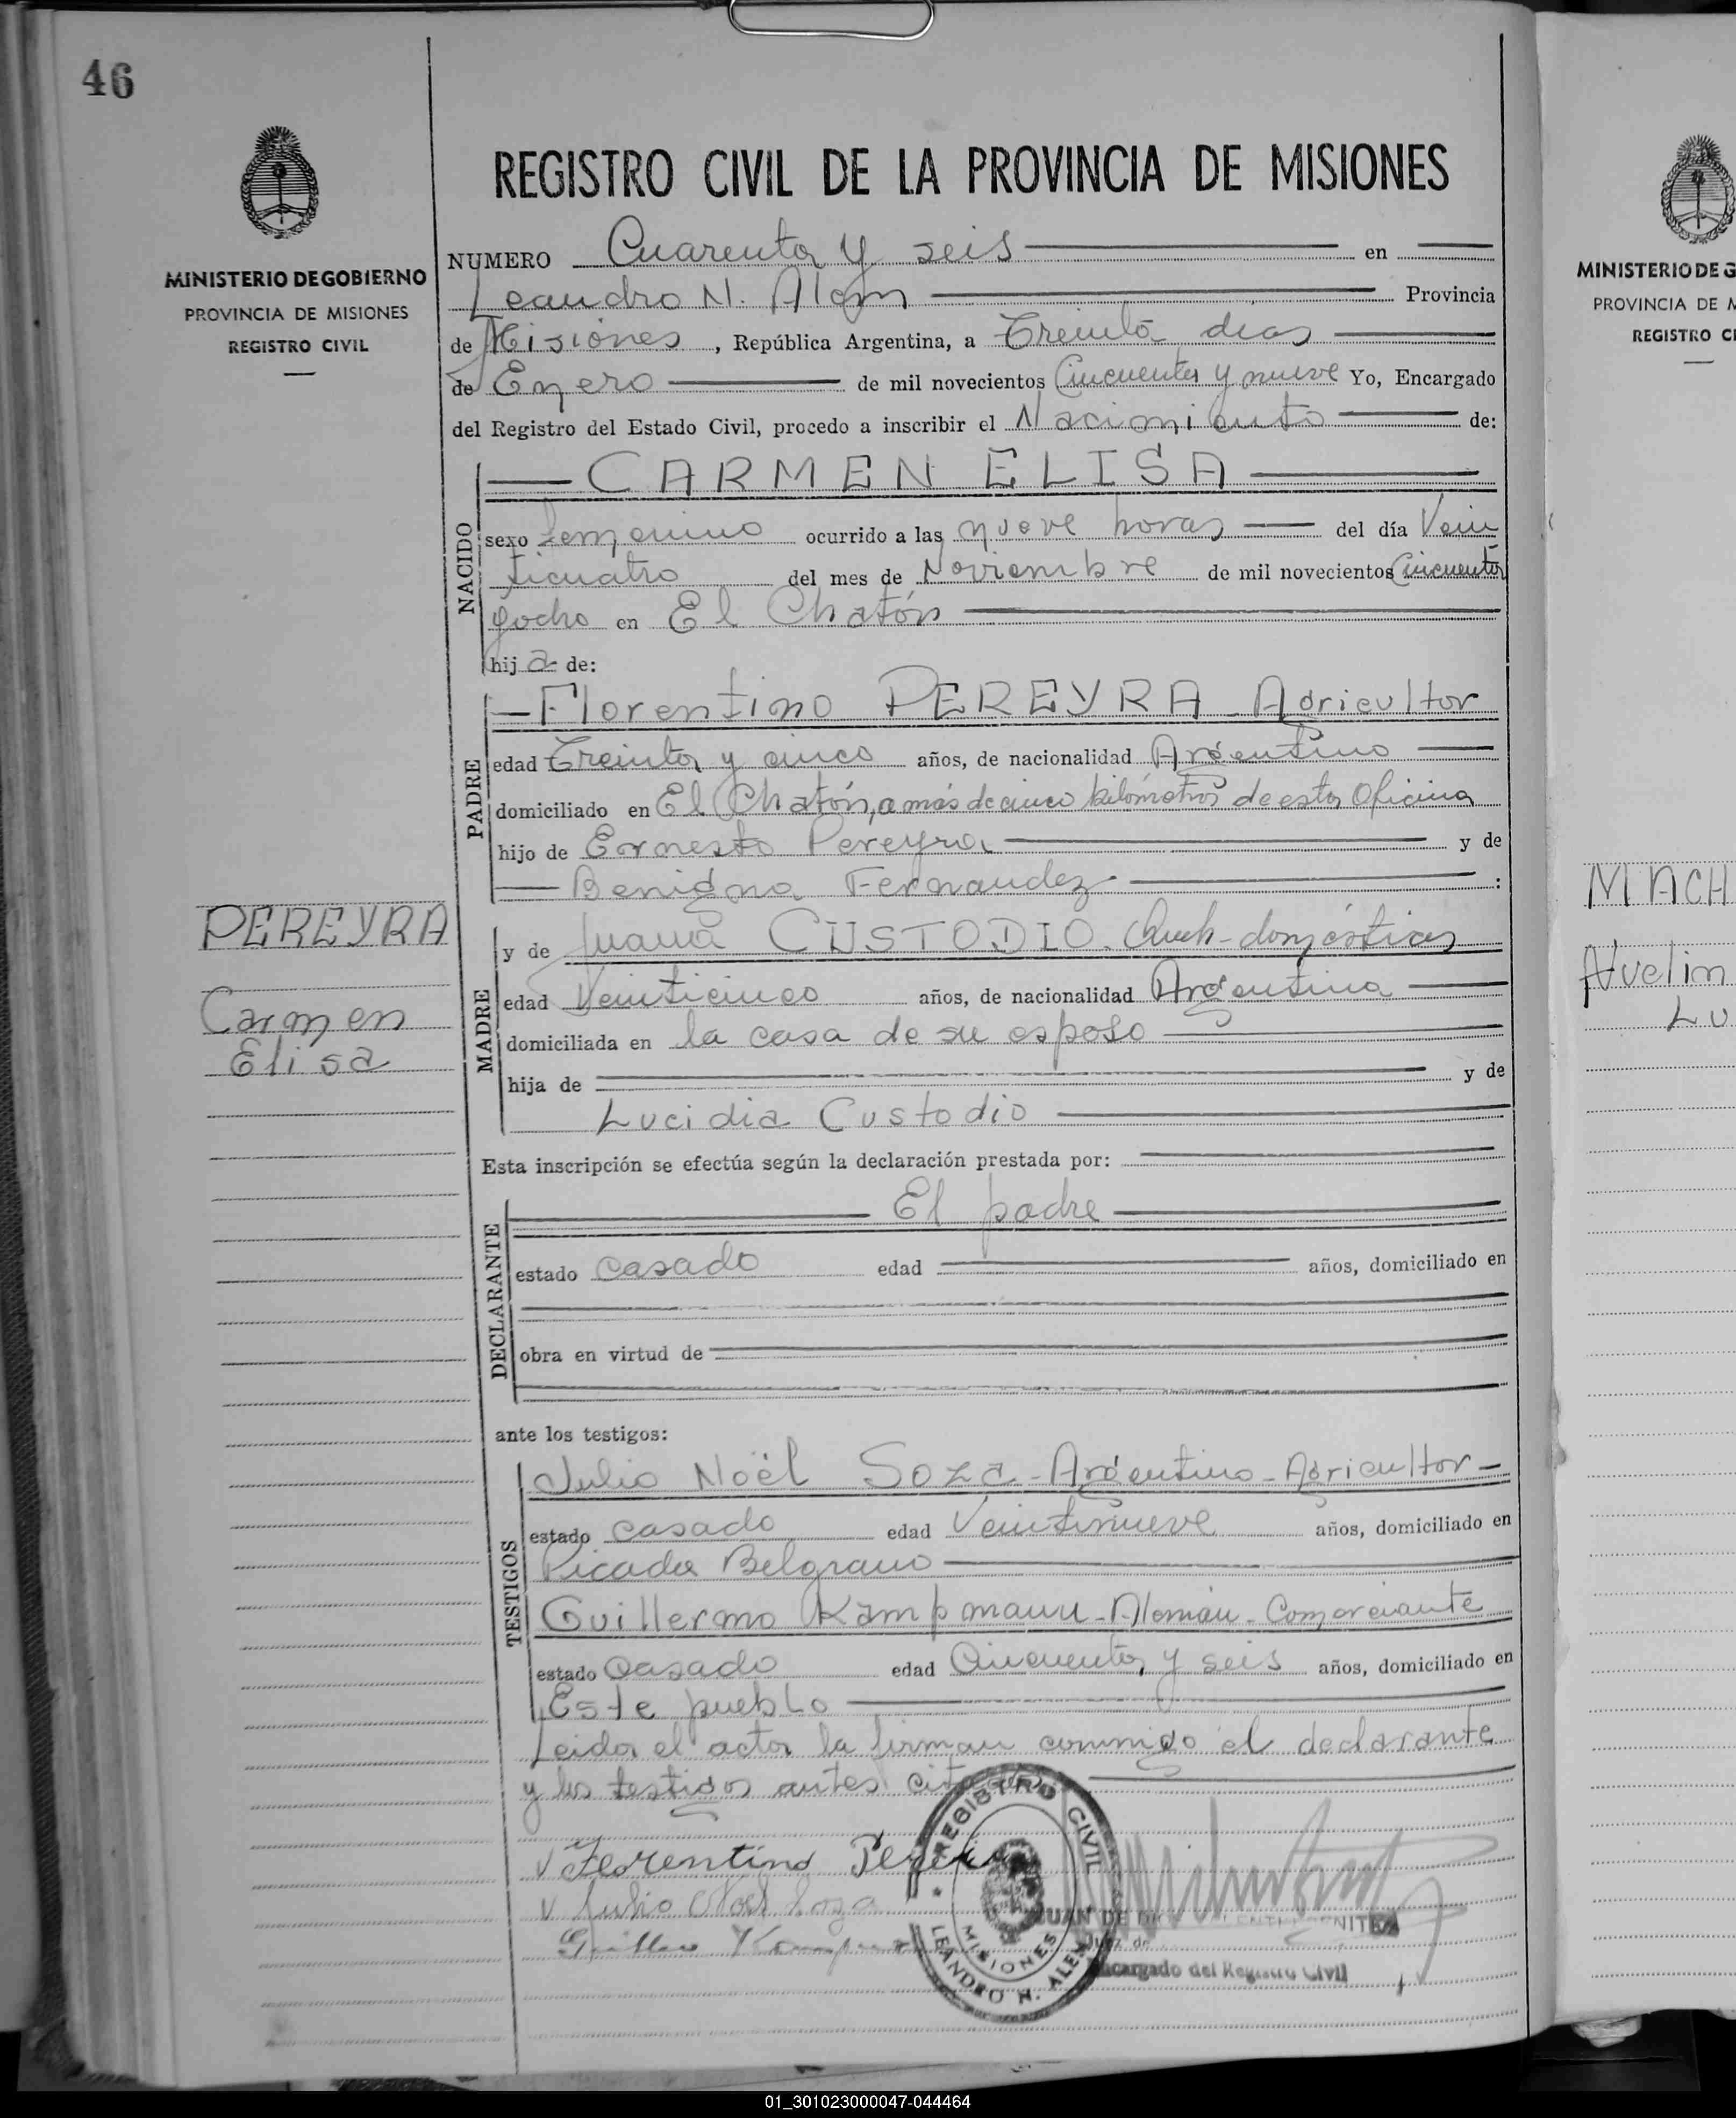 46
MINISTERIO DE GOBIERNO
PROVINCIA DE MISIONES
REGISTRO CIVIL
REGISTRO CIVIL DE LA PROVINCIA DE MISIONES
NUMERO Cuarenta y seis en
Leandro N. Alem Provincia
de Misiones, República Argentina, a Treinta dias
de Enero de mil novecientos Cincuenta y nueve Yo, Encargado
del Registro del Estado Civil, procedo a inscribir el Nacimiento de:
NACIDO
CARMEN ELISA
sexo femenino ocurrido a las nueve horas del día Vein
ticuatro del mes de Noviembre de mil novecientos Cincuenta
y ocho en El Chatón
hija de:
PADRE
Florentino PEREYRA - Agricultor
edad Treinta y cinco años, de nacionalidad Argentino
domiciliado en El Chatón, a más de cinco kilómetros de esta Oficina
hijo de Ernesto Pereyra y de
Benigna Fernandez :
PEREYRA
Carmen
Elisa
MADRE
y de Juana CUSTODIO. Queh-domésticos
edad Veinticinco años, de nacionalidad Argentina
domiciliada en la casa de su esposo
hija de y de
Lucidia Custodio
Esta inscripción se efectúa según la declaración prestada por:
DECLARANTE
El padre
estado casado edad años, domiciliado en
obra en virtud de
ante los testigos:
TESTIGOS
Julio Noël Soza - Argentino - Agricultor -
estado casado edad Veintinueve años, domiciliado en
Picada Belgrano
Guillermo Kampmann - Alemán - Comerciante
estado casado edad Cincuenta y seis años, domiciliado en
Este pueblo
Leida el acta la firman conmigo el declarante
y los testigos antes citados
Florentino Pereira
Julio Noel Soza
REGISTRO CIVIL
MISIONES
LEANDRO N. ALEM
JUAN DE DIOS BENITEZ
Juez de
Encargado del Registro Civil
MINISTERIO DE G
PROVINCIA DE M
REGISTRO CI
MACH
Avelin
Lu
01_301023000047-044464